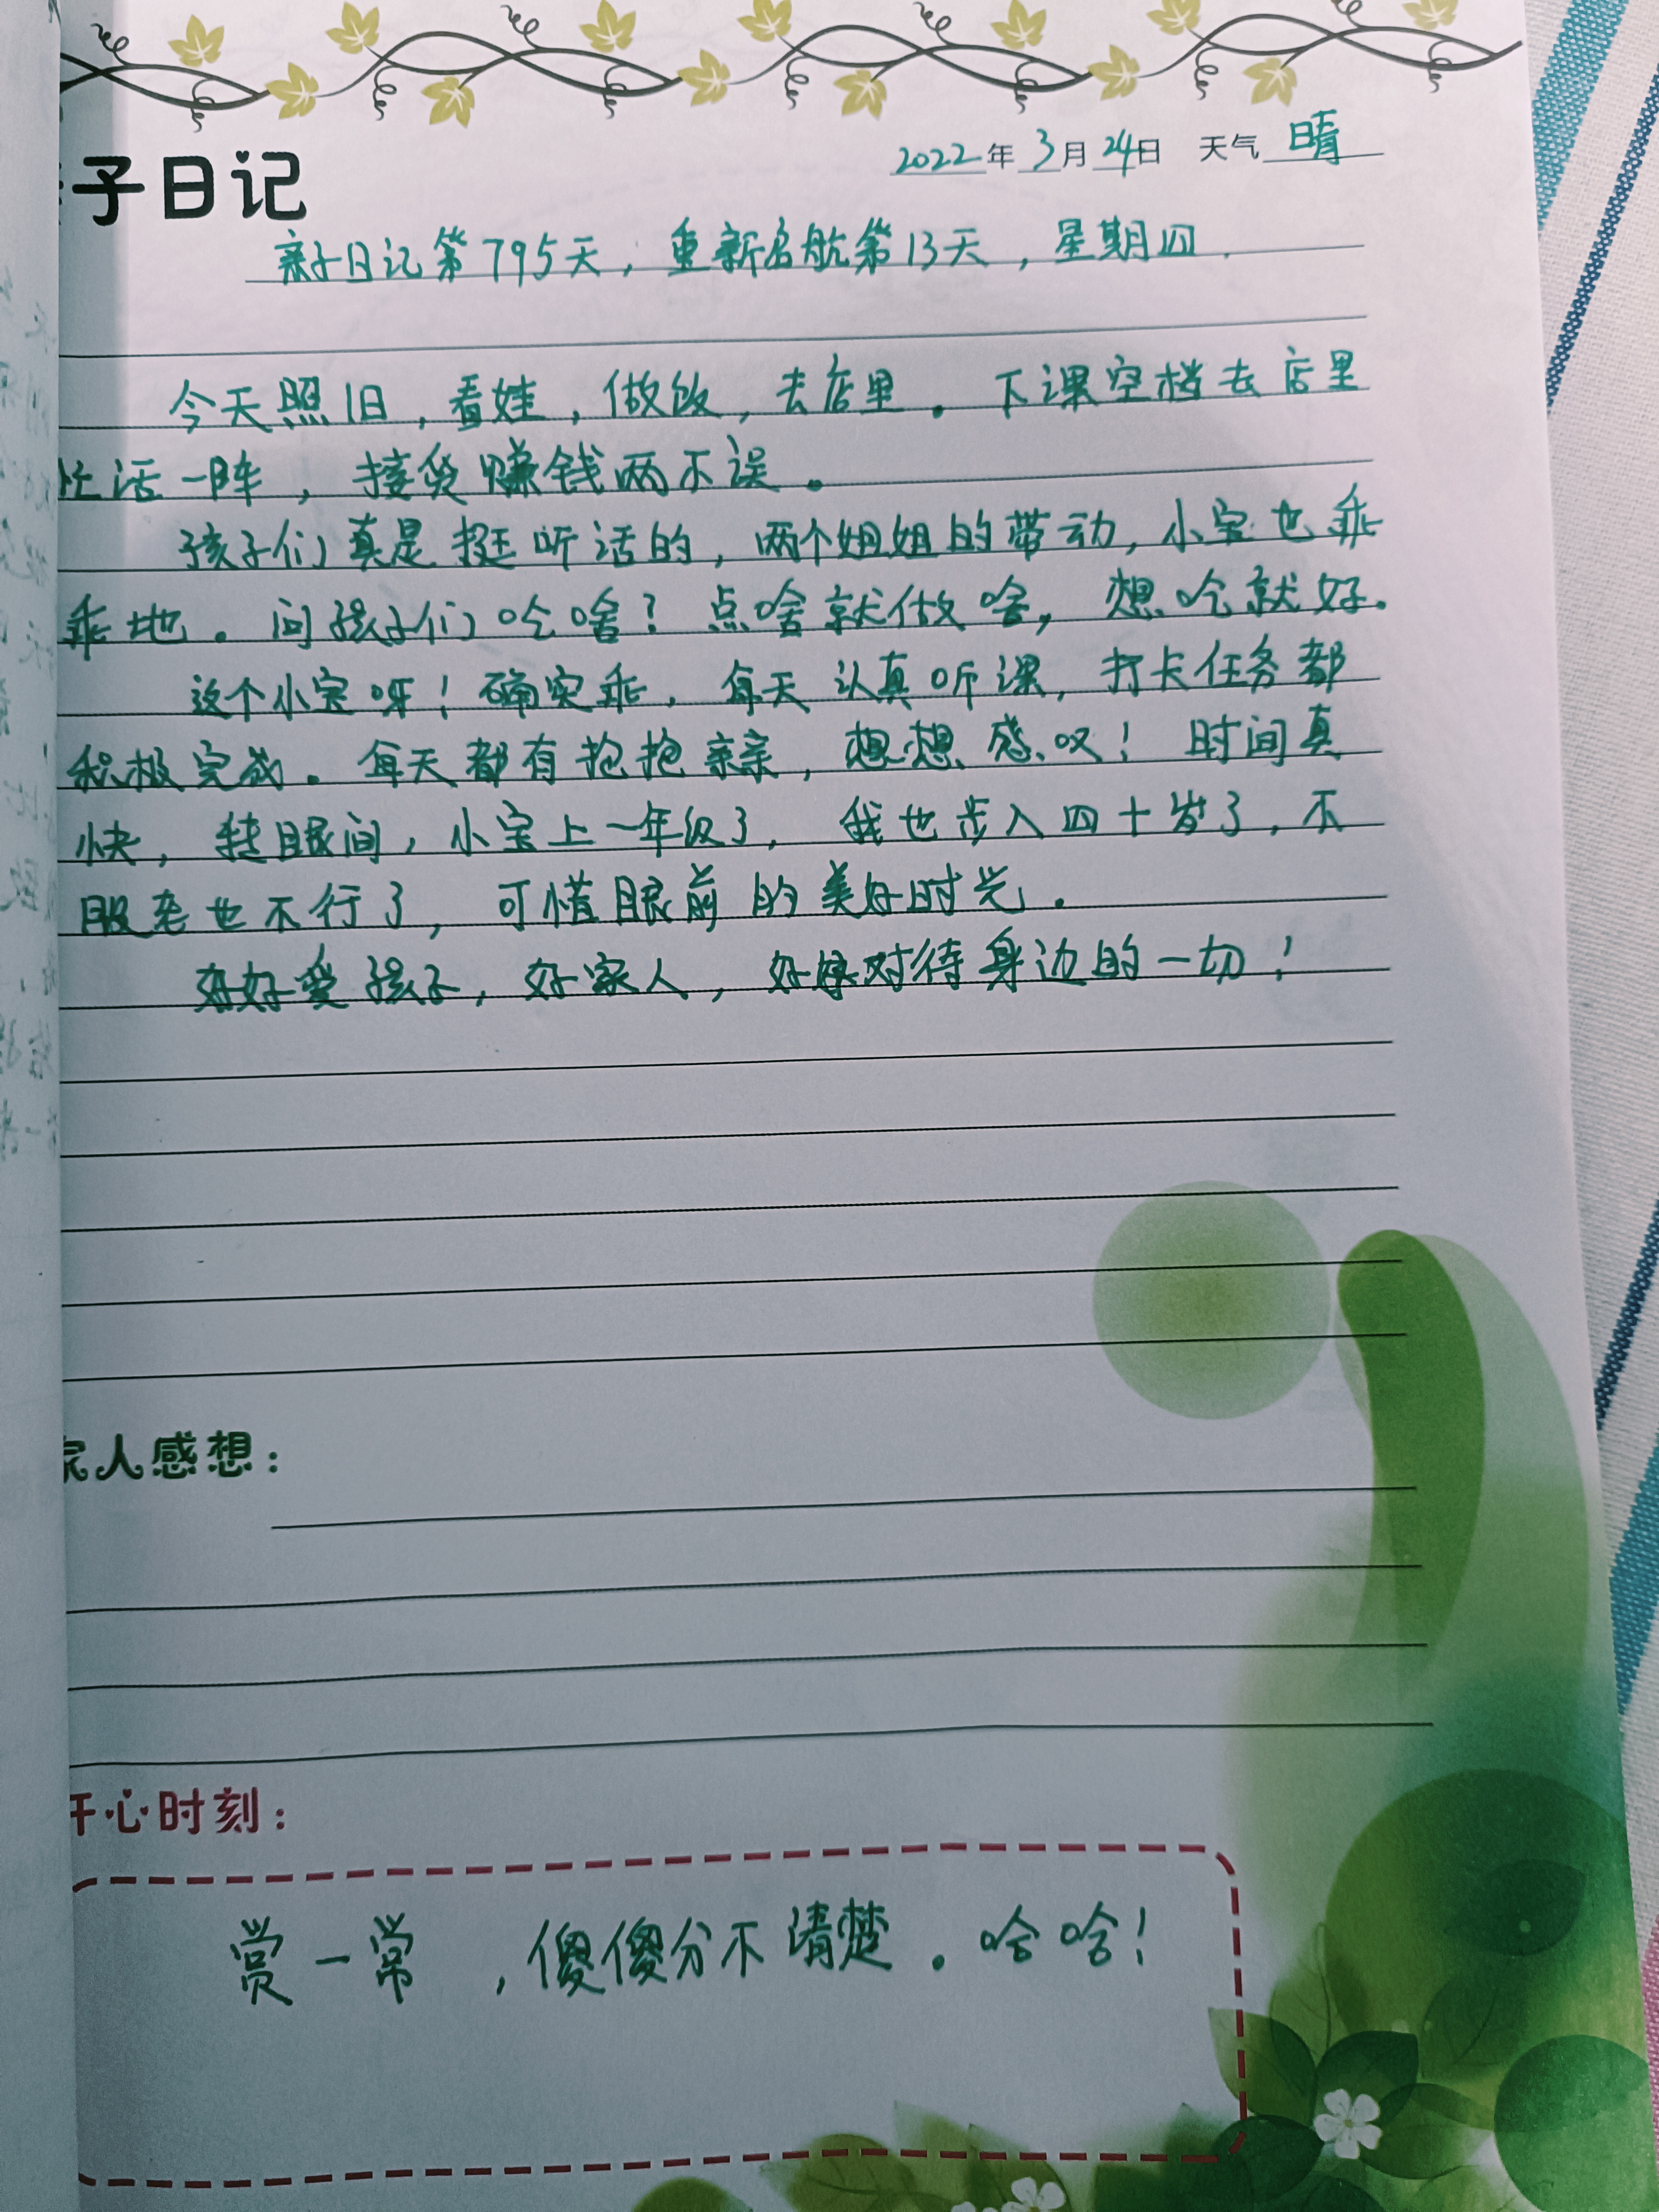 子日记
2022年3月24日 天气 晴
亲子日记第795天，重新启航第13天，星期四.
今天照旧，看娃，做饭，去店里。下课空档去店里
忙活一阵，接货赚钱两不误。
孩子们真是挺听话的，两个姐姐的带动，小宝也乖
乖地。问孩子们吃啥？点啥就做啥，想吃就好.
这个小宝呀！确实乖，每天认真听课，打卡任务都
积极完成。每天都有抱抱亲亲，想想感叹！时间真
快，转眼间，小宝上一年级了，我也步入四十岁了，不
服老也不行了，可惜眼前的美好时光。
好好爱孩子，好家人，好好对待身边的一切！
家人感想：
开心时刻：
赏一常，傻傻分不清楚。哈哈！